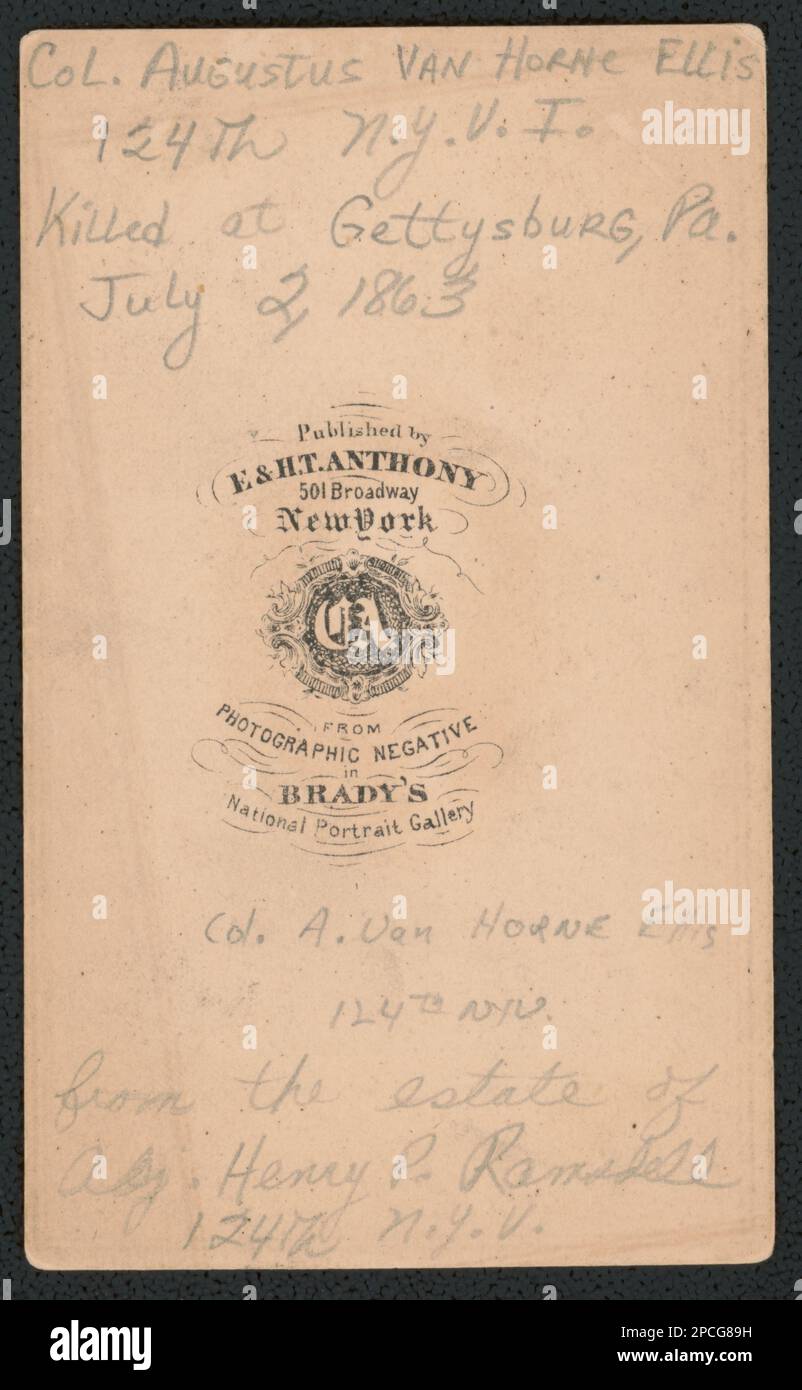 Col. Augustus Van Horne Ellis
124th N.Y.V.I.
Killed at Gettysburg, Pa.
July 2, 1863
Published by
E & H.T. ANTHONY
501 Broadway
New York
EA
FROM
PHOTOGRAPHIC NEGATIVE
in
BRADY'S
National Portrait Gallery
Col. A. Van Horne Ellis
124th NYV.
from the estate of
Adj. Henry P. Ramsdell
124th N.Y.V.
alamy
Image ID: 2PCG89H
www.alamy.com